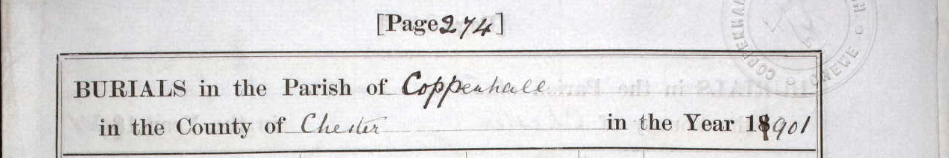 [Page 274]
BURIALS in the Parish of Coppenhall
in the County of Chester in the Year 1901